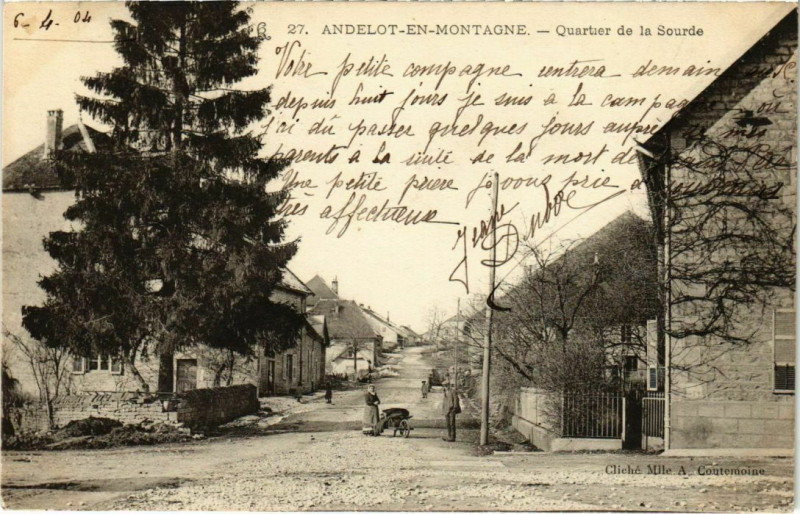 6-4-04
27. ANDELOT-EN-MONTAGNE. — Quartier de la Sourde
Votre petite compagne rentrera demain
depuis huit jours je suis à la campagne où
j'ai dû passer quelques jours auprès de mes
parents à la suite de la mort de
Une petite prière je vous prie
très affectueux
Jeanne
Cliché Mlle A. Coutemoine